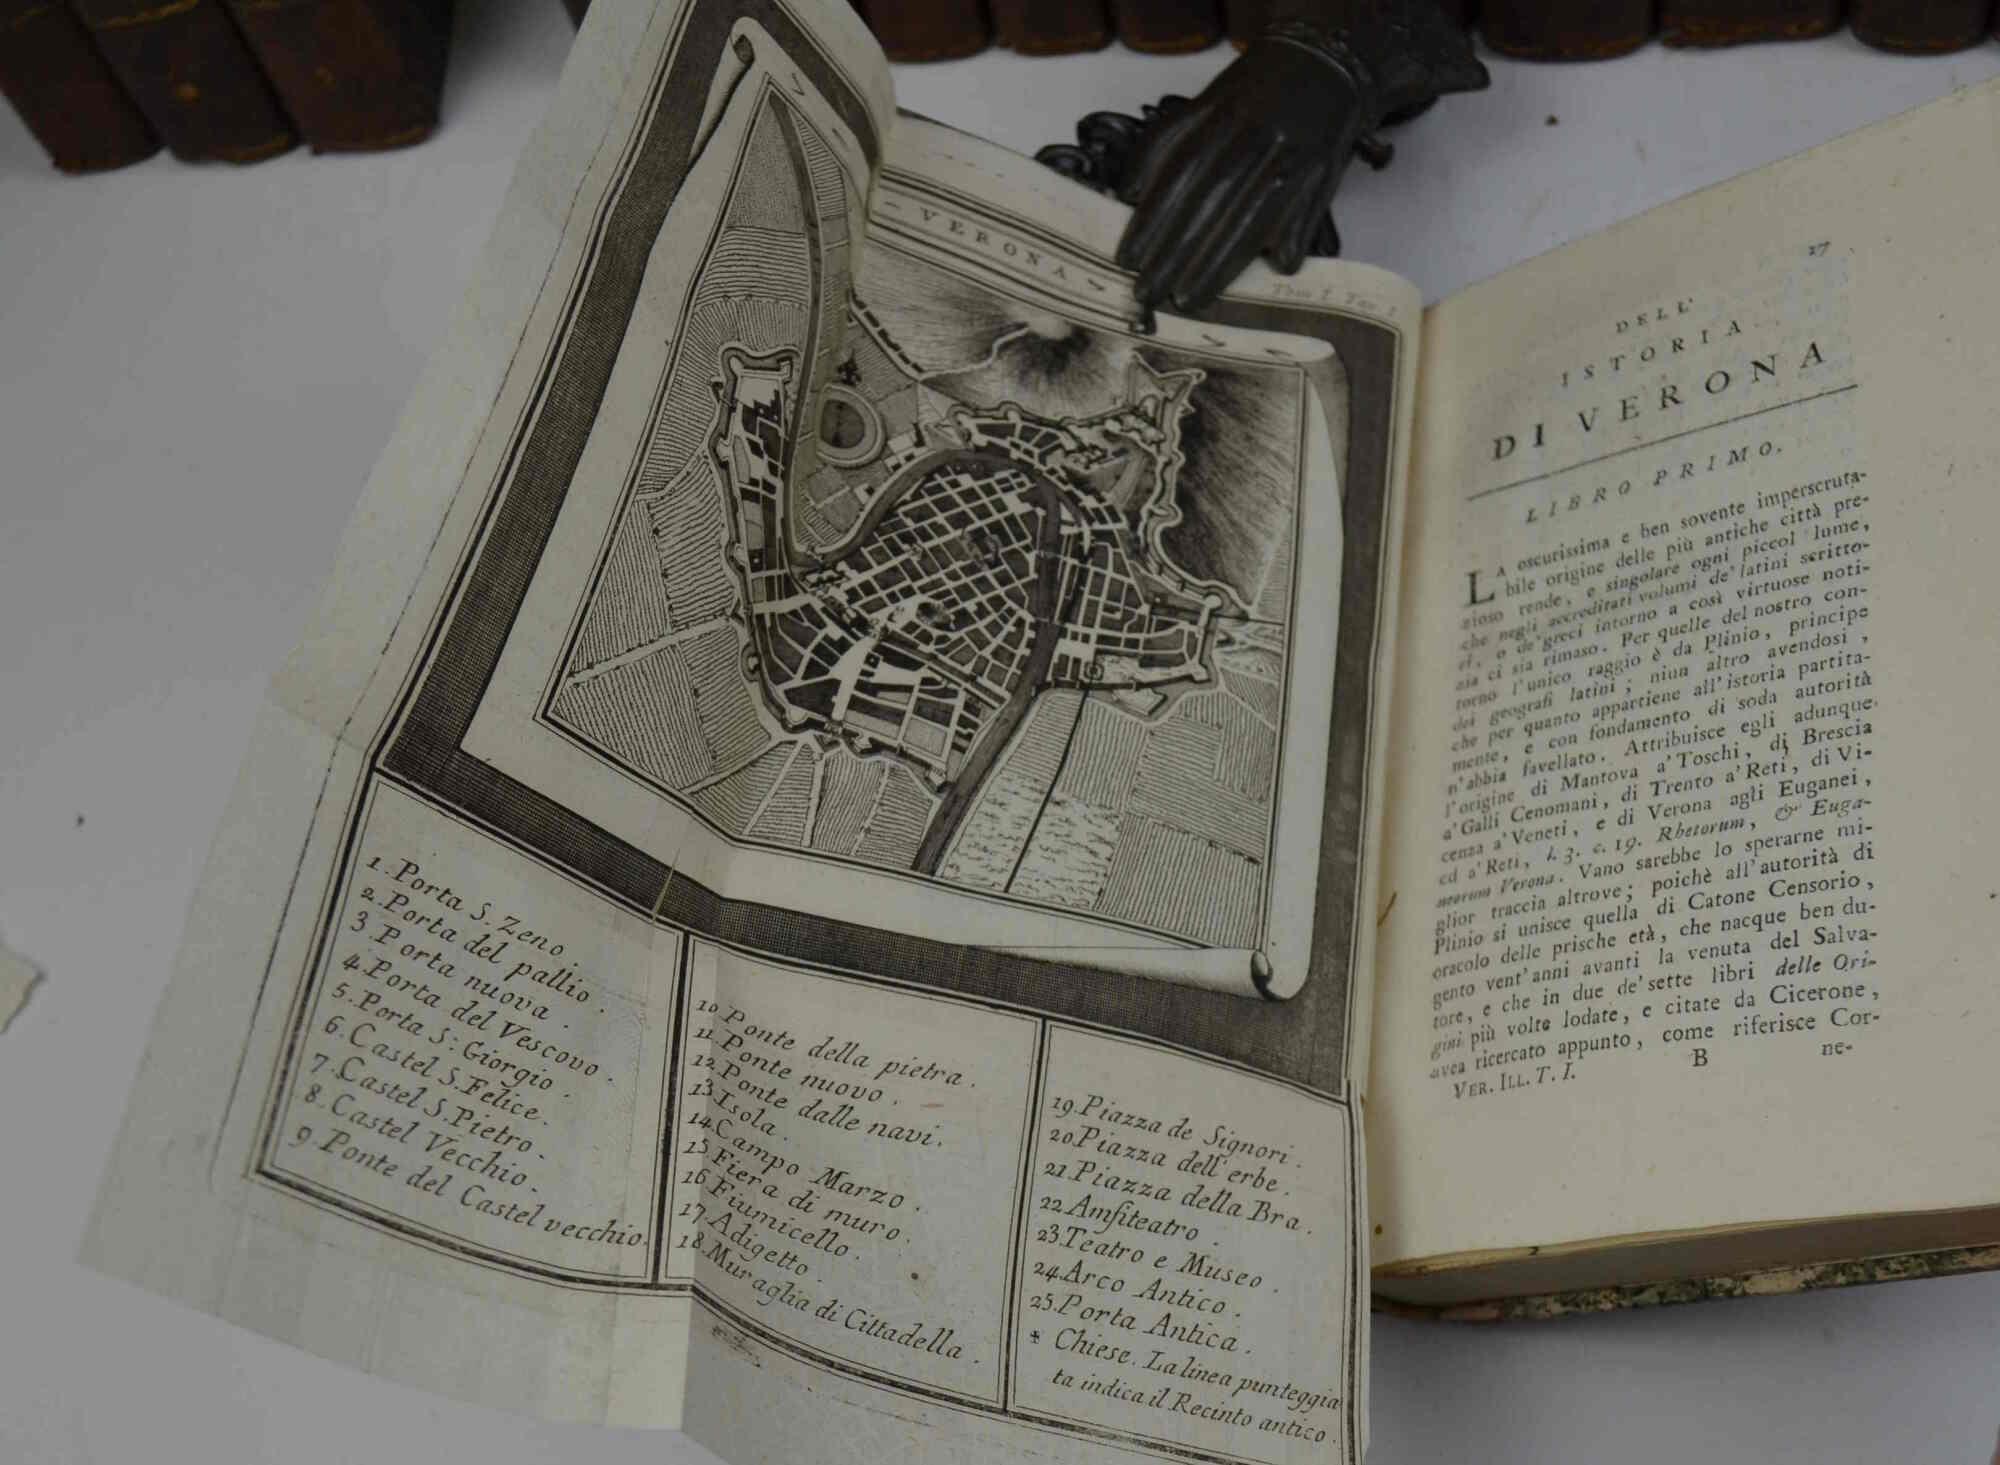 VERONA
Tom I. Tav. I
1. Porta S. Zeno.
2. Porta del pallio.
3. Porta nuova.
4. Porta del Vescovo.
5. Porta S: Giorgio.
6. Castel S. Felice.
7. Castel S. Pietro.
8. Castel Vecchio.
9. Ponte del Castel vecchio.
10 Ponte della pietra.
11. Ponte nuovo.
12. Ponte dalle navi.
13. Isola.
14. Campo Marzo.
15. Fiera di muro.
16. Fiumicello.
17. Adigetto.
18. Muraglia di Cittadella.
19. Piazza de Signori.
20 Piazza dell'erbe.
21. Piazza della Bra.
22. Amfiteatro.
23. Teatro e Museo.
24. Arco Antico.
25. Porta Antica.
✠ Chiese. La linea punteggia
ta indica il Recinto antico.
27
DELL'
ISTORIA
DI VERONA
LIBRO PRIMO.
LA oscurissima e ben sovente imperscruta-
bile origine delle più antiche città pre-
zioso rende, e singolare ogni piccol lume,
che negli accreditati volumi de' latini scritto-
ri, o de' greci intorno a così virtuose noti-
zia ci sia rimaso. Per quelle del nostro con-
torno l'unico raggio è da Plinio, principe
dei geografi latini; niun altro avendosi,
che per quanto appartiene all'istoria partita-
mente, e con fondamento di soda autorità
n'abbia favellato. Attribuisce egli adunque
l'origine di Mantova a' Toschi, di Brescia
a' Galli Cenomani, di Trento a' Reti, di Vi-
cenza a' Veneti, e di Verona agli Euganei,
ed a' Reti, l. 3. c. 19. Rhetorum, & Euga-
neorum Verona. Vano sarebbe lo sperarne mi-
glior traccia altrove; poichè all'autorità di
Plinio si unisce quella di Catone Censorio,
oracolo delle prische età, che nacque ben du-
gento vent'anni avanti la venuta del Salva-
tore, e che in due de' sette libri delle Ori-
gini più volte lodate, e citate da Cicerone,
avea ricercato appunto, come riferisce Cor-
VER. ILL. T. I. B ne-